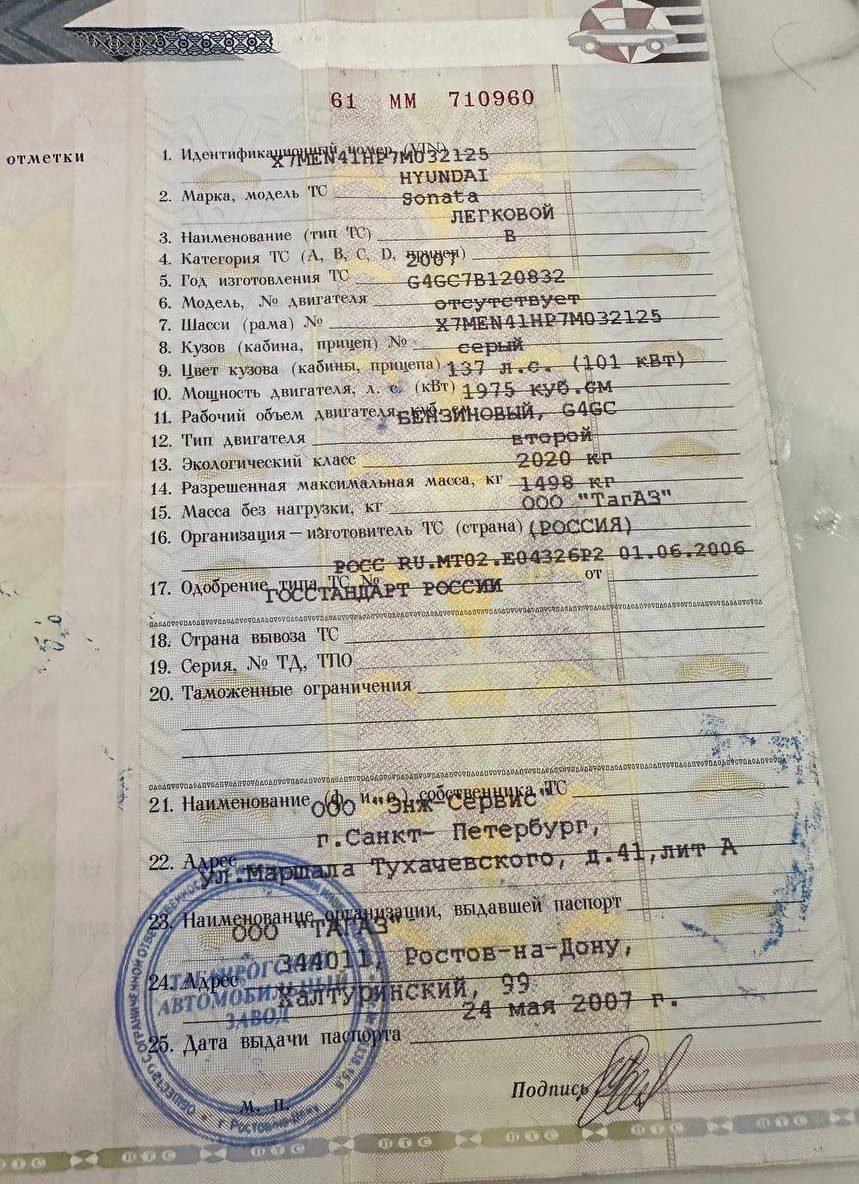 61 ММ 710960
отметки
1. Идентификационный номер (VIN) X7MEN41HP7M032125
HYUNDAI
2. Марка, модель ТС Sonata
ЛЕГКОВОЙ
3. Наименование (тип ТС)
B
4. Категория ТС (A, B, C, D, прицеп)
2007
5. Год изготовления ТС
G4GC7B120832
6. Модель, № двигателя
отсутствует
7. Шасси (рама) №
X7MEN41HP7M032125
8. Кузов (кабина, прицеп) №
серый
9. Цвет кузова (кабины, прицепа)
137 л.с. (101 кВт)
10. Мощность двигателя, л. с. (кВт)
1975 куб.см
11. Рабочий объем двигателя, куб. см
БЕНЗИНОВЫЙ, G4GC
12. Тип двигателя
второй
13. Экологический класс
2020 кг
14. Разрешенная максимальная масса, кг
1498 кг
15. Масса без нагрузки, кг
ООО "ТагАЗ"
16. Организация – изготовитель ТС (страна) (РОССИЯ)
РОСС RU.МТ02.Е04326Р2 01.06.2006
17. Одобрение типа ТС № от
ГОССТАНДАРТ РОССИИ
18. Страна вывоза ТС
19. Серия, № ТД, ТПО
20. Таможенные ограничения
21. Наименование (ф. и. о.) собственника ТС
ООО "Энж-Сервис"
г.Санкт- Петербург,
22. Адрес
ул.Маршала Тухачевского, д.41,лит А
23. Наименование организации, выдавшей паспорт
ООО "ТАГАЗ"
344011, Ростов-на-Дону,
24. Адрес
Халтуринский, 99
ТАГАНРОГСКИЙ
АВТОМОБИЛЬНЫЙ
ЗАВОД
24 мая 2007 г.
25. Дата выдачи паспорта
Подпись
М. П.
г. Ростов-на-Дону
ПТС ПТС ПТС ПТС